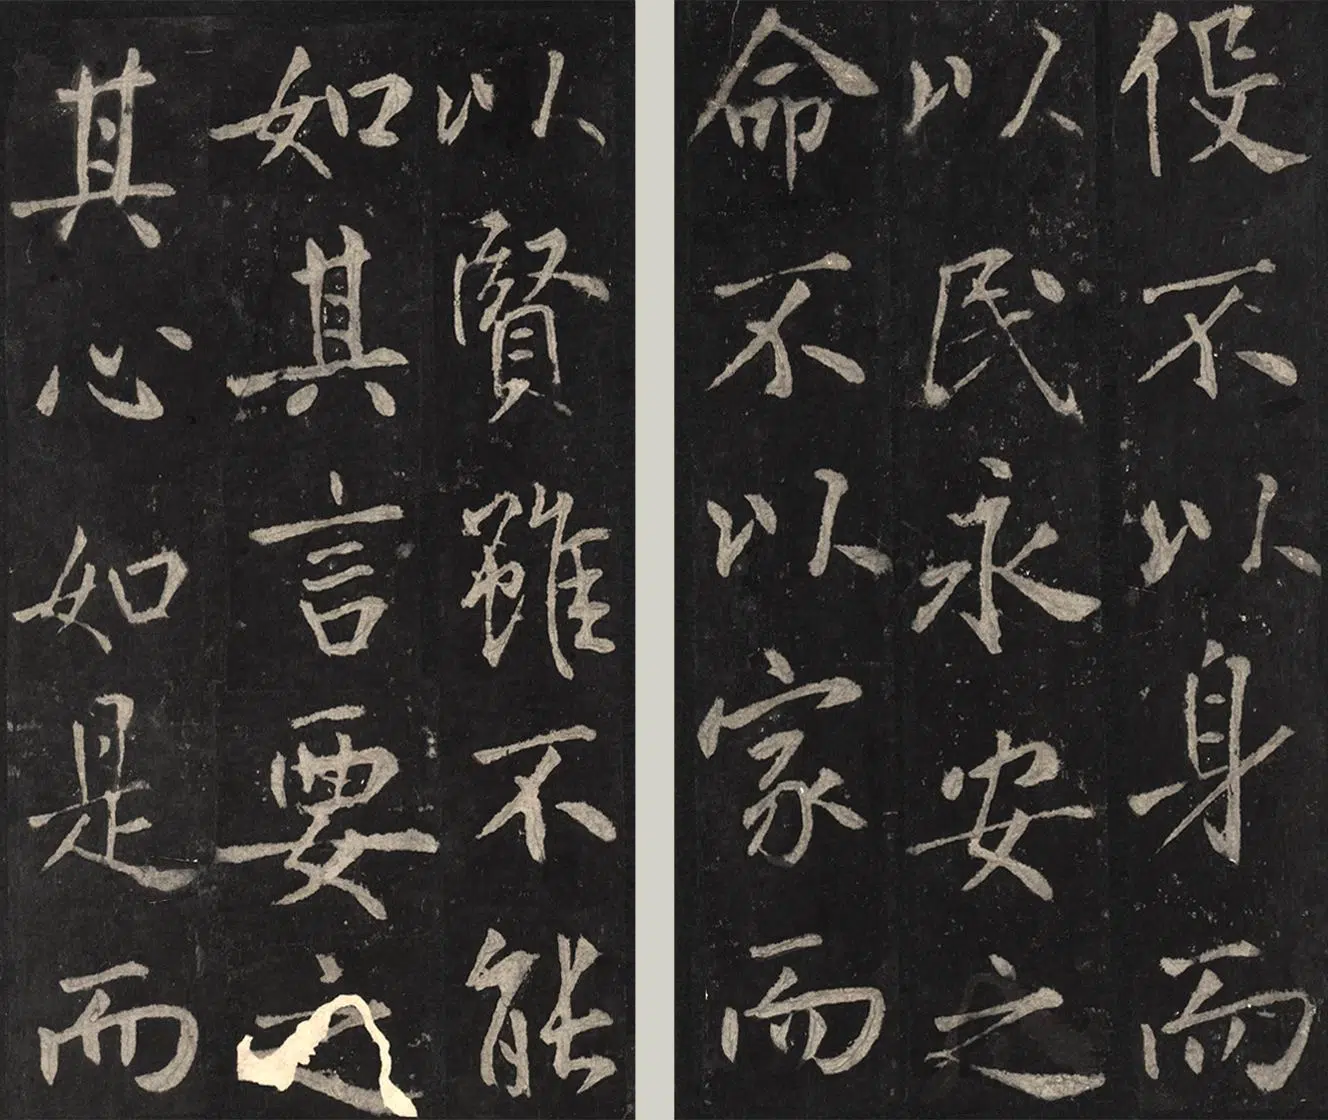 伇不以身而
以民永安之
命不以家而
以賢雖不能
如其言要之
其心如是而